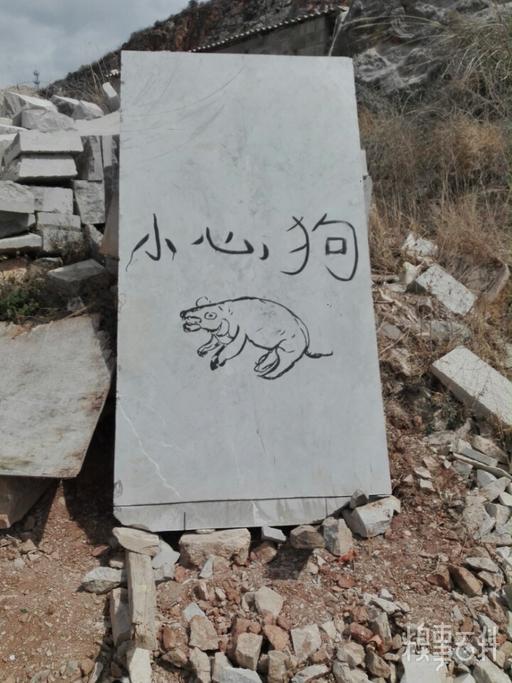 小心狗
糗事百科